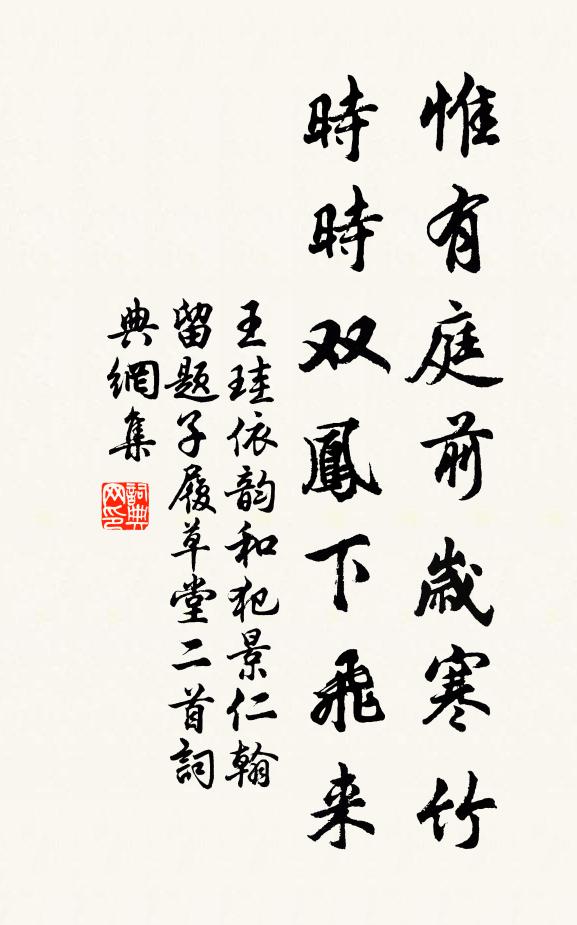 惟有庭前歲寒竹
時時双鳳下飛来
王珪依韵和犯景仁翰
留題子履草堂二首詞
典網集
詞典网印